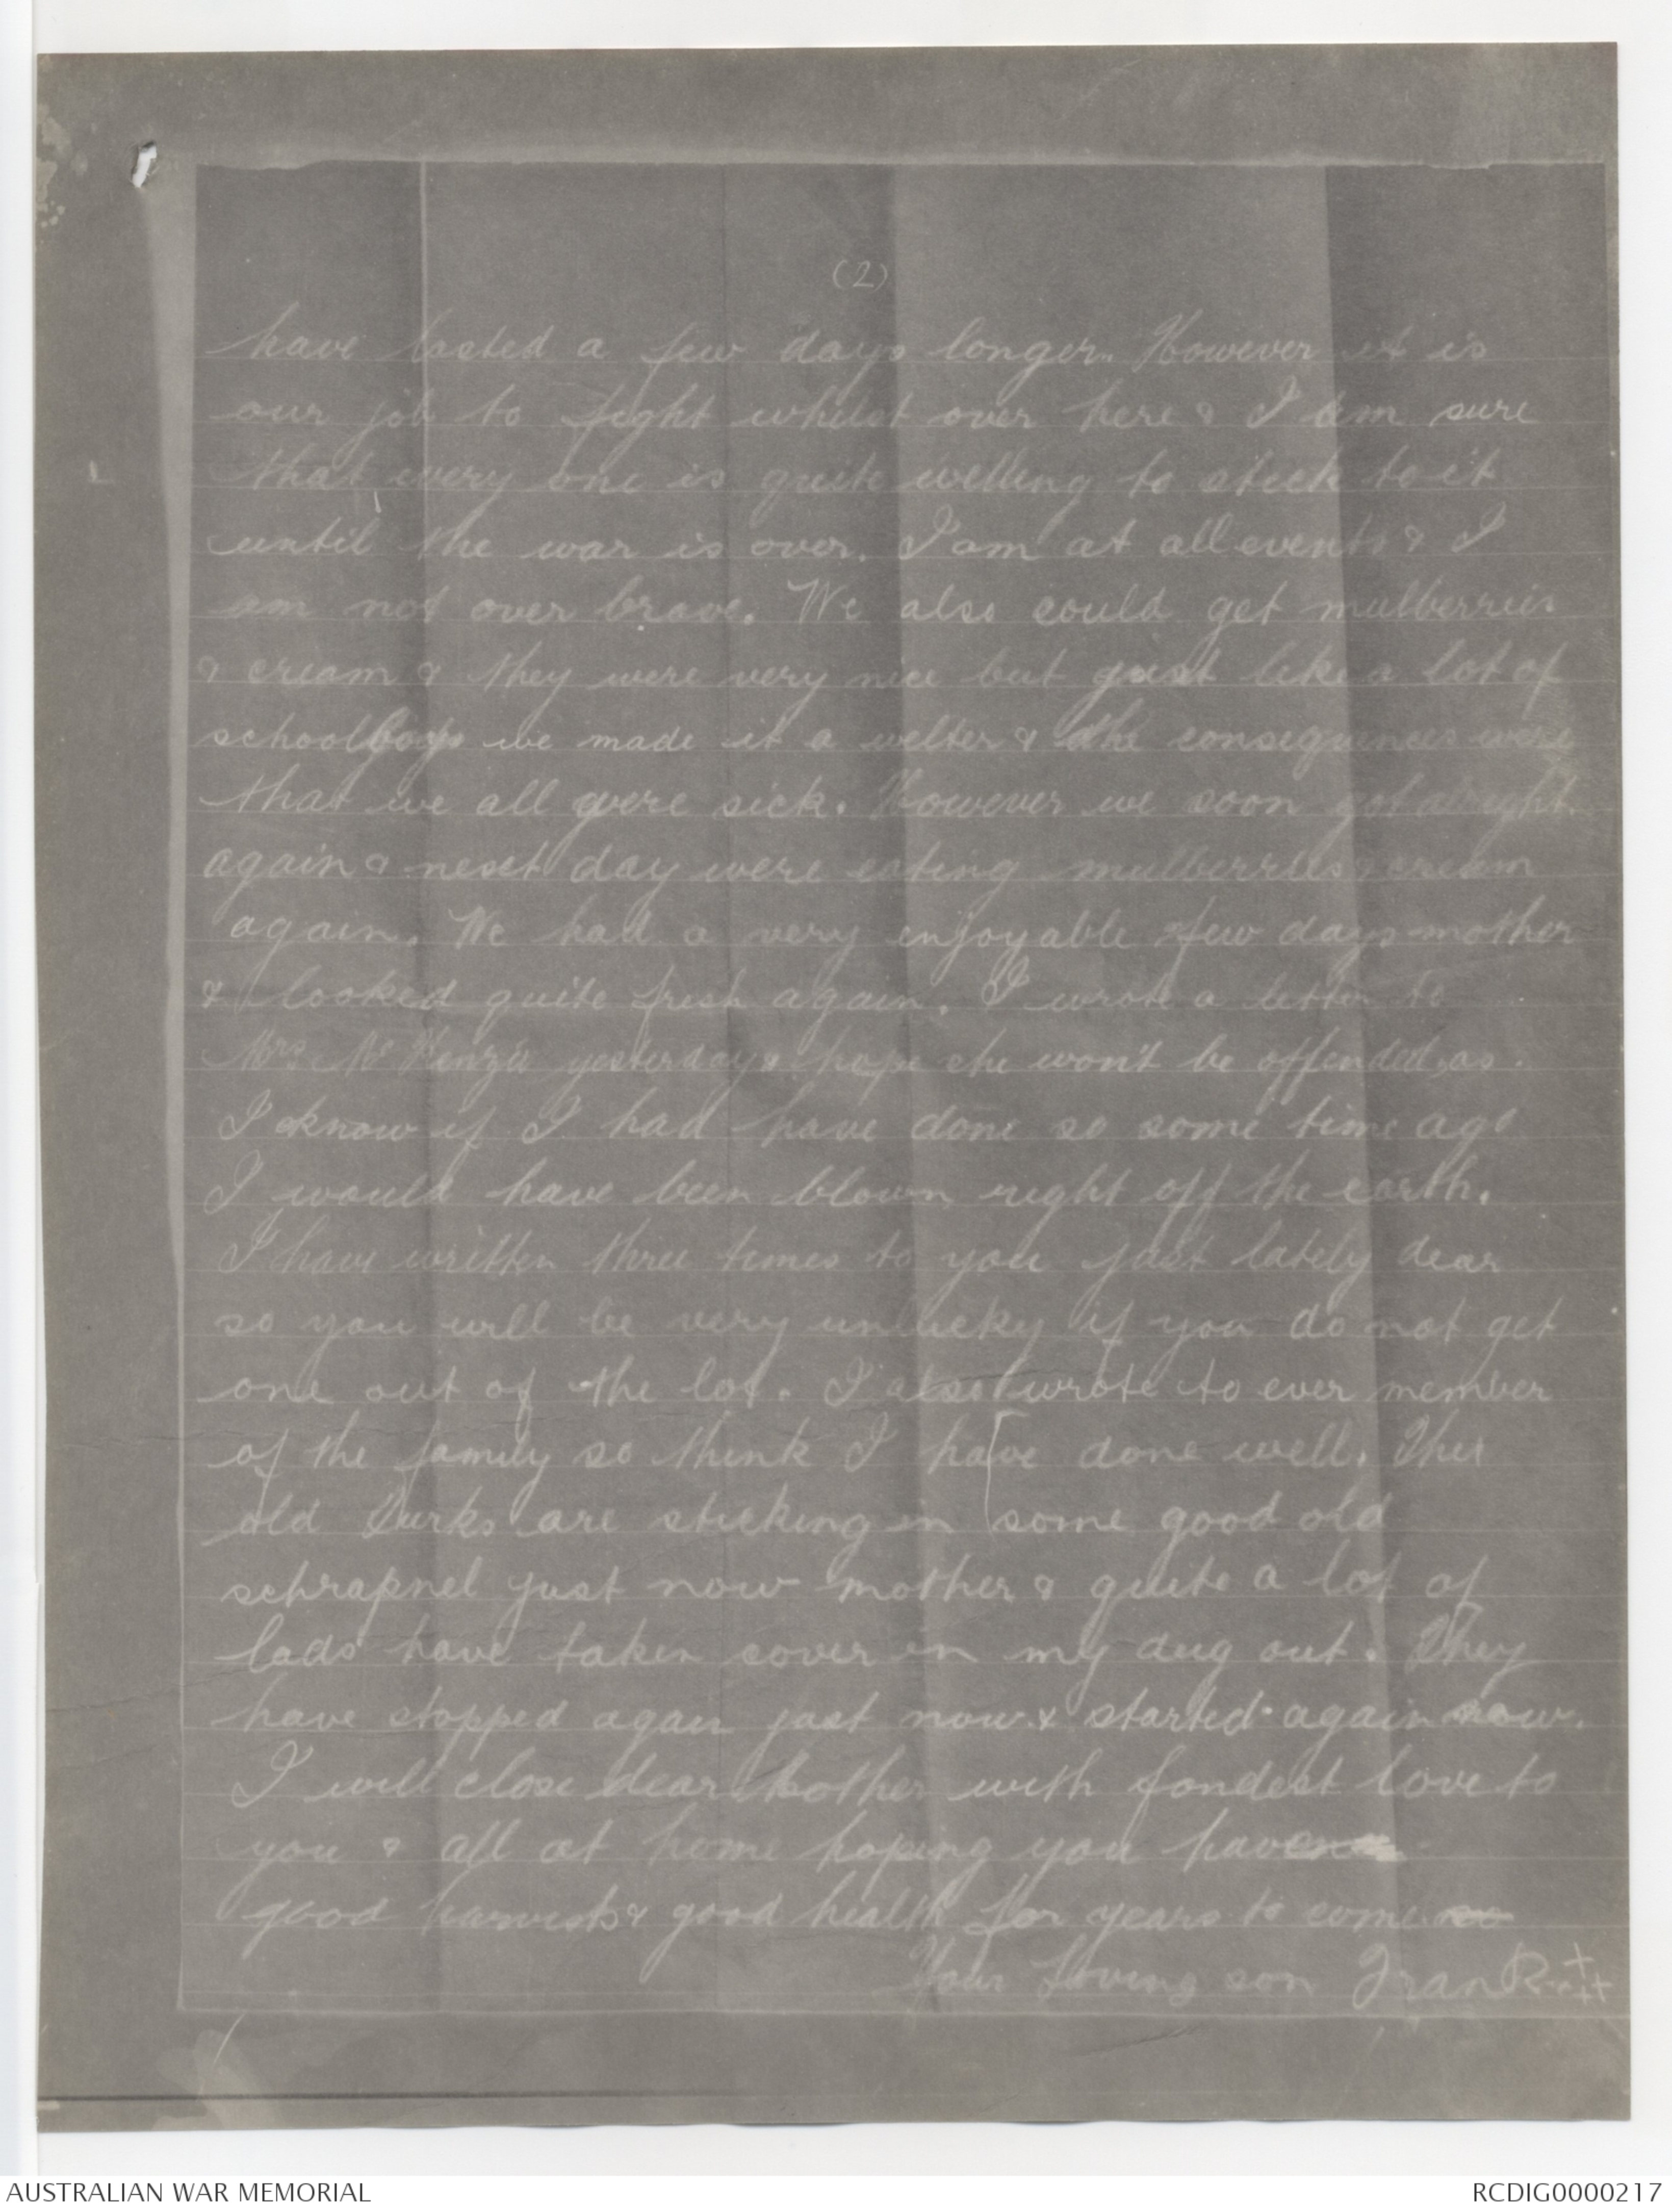 (2)
have lasted a few days longer. However it is
our job to fight whilst over here & I am sure
that every one is quite willing to stick to it
until the war is over. I am at all events & I
am not over brave. We also could get mulberries
& cream & they were very nice but just like a lot of
schoolboys we made it a welter & the consequences were
that we all were sick. However we soon got alright
again & next day were eating mulberries & cream
again. We had a very enjoyable few days mother
& looked quite fresh again. I wrote a letter to
Mrs McKenzie yesterday & hope she won't be offended as
I know if I had have done so some time ago
I would have been blown right off the earth.
I have written three times to you just lately dear
so you will be very unlucky if you do not get
one out of the lot. I also wrote to ever member
of the family so think I have done well. Ther
old Turks are sticking in some good old
schrapnel just now mother & quite a lot of
lads have taken cover in my dug out. They
have stopped again just now & started again now.
I will close dear Mother with fondest love to
you & all at home hoping you have
good harvests & good health for years to come
Your Loving son Frank
AUSTRALIAN WAR MEMORIAL
RCDIG0000217